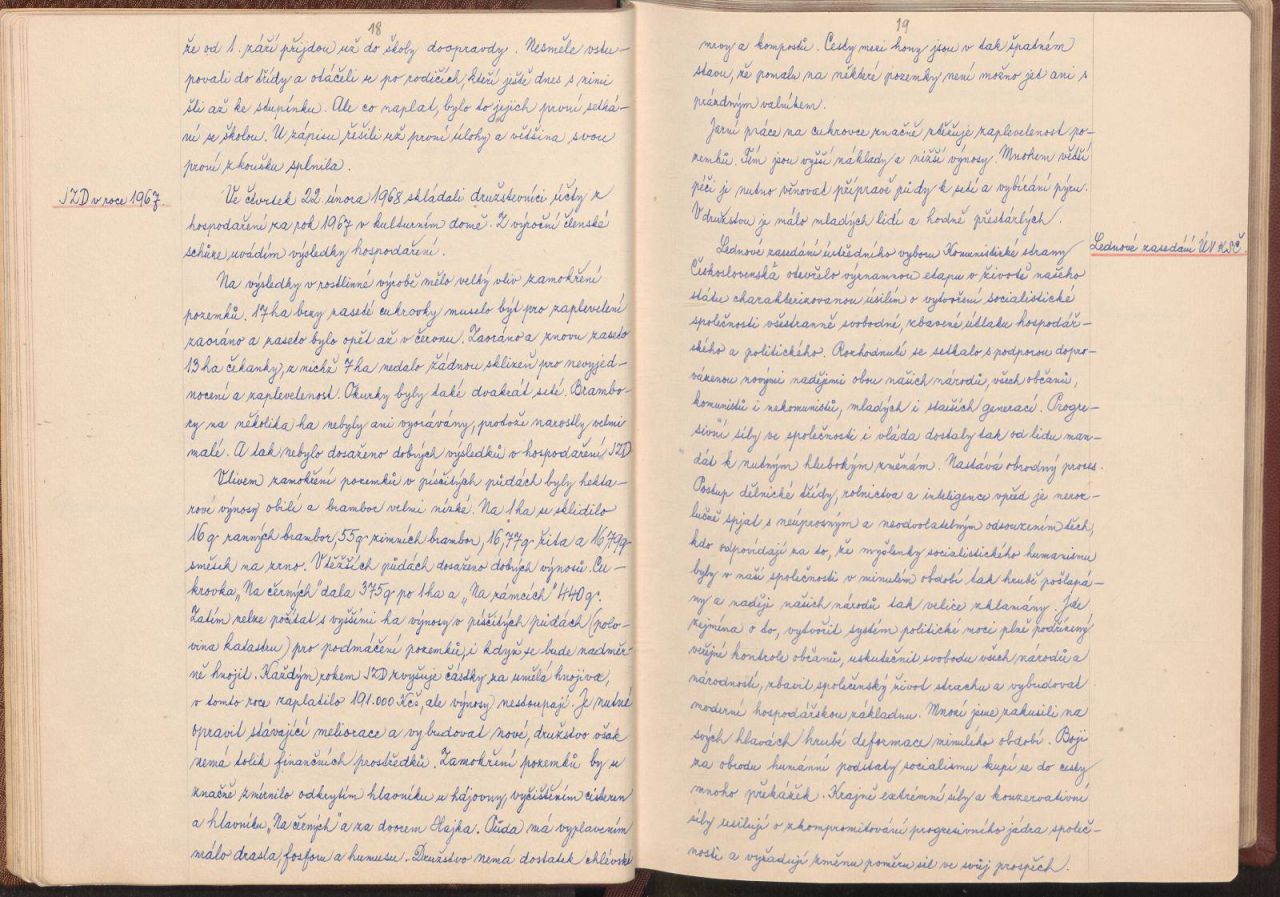 18
že od 1. září přijdou už do školy doopravdy. Nesměle vstu-
povali do třídy a otáčeli se po rodičích, kteří ještě dnes s nimi
šli až ke stupínku. Ale co naplat, bylo to jejich první setká-
ní se školou. U zápisu řešili už první úlohy a většina svou
první zkoušku splnila.
JZD v roce 1967
Ve čtvrtek 22. února 1968 skládali družstevníci účty z
hospodaření za rok 1967 v kulturním domě. Z výroční členské
schůze uvádím výsledky hospodaření.
Na výsledky v rostlinné výrobě mělo velký vliv zamokření
pozemků. 17 ha brzy zaseté cukrovky muselo být pro zaplevelení
zaoráno a zaseto bylo opět až v červnu. Zaoráno a znovu zaseto
13 ha čekanky, z nichž 7 ha nedalo žádnou sklizeň pro nevyjed-
nocení a zaplevelenost. Okurky byly také dvakrát seté. Brambo-
ry na několika ha nebyly ani vyorávány, protože narostly velmi
malé. A tak nebylo dosaženo dobrých výsledků v hospodaření JZD.
Vlivem zamokření pozemků v písčitých půdách byly hekta-
rové výnosy obilí a brambor velmi nízké. Na 1 ha se sklidilo
16 q ranných brambor, 55 q zimních brambor, 16,77 q žita a 16,79 q
směsek na zrno. V těžších půdách dosaženo dobrých výnosů. Cu-
krovka „Na černých" dala 375 q po 1 ha a „Na rámcích" 440 q.
Zatím nelze počítat s vyššími ha výnosy v písčitých půdách (polo-
vina katastru) pro podmáčení pozemků, i když se bude nadměr-
ně hnojit. Každým rokem JZD zvyšuje částky za umělá hnojiva,
v tomto roce zaplatilo 191.000 Kčs, ale výnosy nestoupají. Je nutné
opravit stávající meliorace a vybudovat nové, družstvo však
nemá tolik finančních prostředků. Zamokření pozemků by se
značně zmírnilo odkrytím hlavníku u hájovny, vyčištěním cisteren
a hlavníku „Na černých" a za dvorem Hajka. Půda má vyplavením
málo drasla, fosforu a humusu. Družstvo nemá dostatek chlévské
19
mrvy a kompostů. Cesty mezi hony jsou v tak špatném
stavu, že pomalu na některé pozemky není možno jet ani s
prázdným valníkem.
Jarní práce na cukrovce značně ztěžuje zaplevelenost po-
zemků. Tím jsou vyšší náklady a nižší výnosy. Mnohem větší
péči je nutno věnovat přípravě půdy k setí a vybírání pýru.
V družstvu je málo mladých lidí a hodně přestárlých.
Lednové zasedání ÚV KSČ.
Lednové zasedání ústředního výboru Komunistické strany
Československa otevřelo významnou etapu v životě našeho
státu charakterizovanou úsilím o vytvoření socialistické
společnosti všestranně svobodné, zbavené útlaku hospodář-
ského a politického. Rozhodnutí se setkalo s podporou dopro-
vázenou novými nadějemi obou našich národů, všech občanů,
komunistů i nekomunistů, mladých i starších generací. Progre-
sivní síly ve společnosti i vláda dostaly tak od lidu man-
dát k nutným hlubokým změnám. Nastává obrodný proses.
Postup dělnické třídy, rolnictva a inteligence vpřed je neroz-
lučně spjat s neúprosným a neodvolatelným odsouzením těch,
kdo odpovídají za to, že myšlenky socialistického humanismu
byly v naší společnosti v minulém období tak hrubě pošlapá-
ny a naděje našich národů tak velice zklamány. Jde
zejména o to, vytvořit systém politické moci plně podřízený
veřejné kontrole občanů, uskutečnit svobodu všech národů a
národností, zbavit společenský život strachu a vybudovat
moderní hospodářskou základnu. Mnozí jsme zakusili na
svých hlavách hrubé deformace minulého období. Boji
za obrodu humánní podstaty socialismu kupí se do cesty
mnoho překážek. Krajně extrémní síly a konzervativní
síly usilují o zkompromitování progresivního jádra společ-
nosti a vyžadují změnu poměru sil ve svůj prospěch.